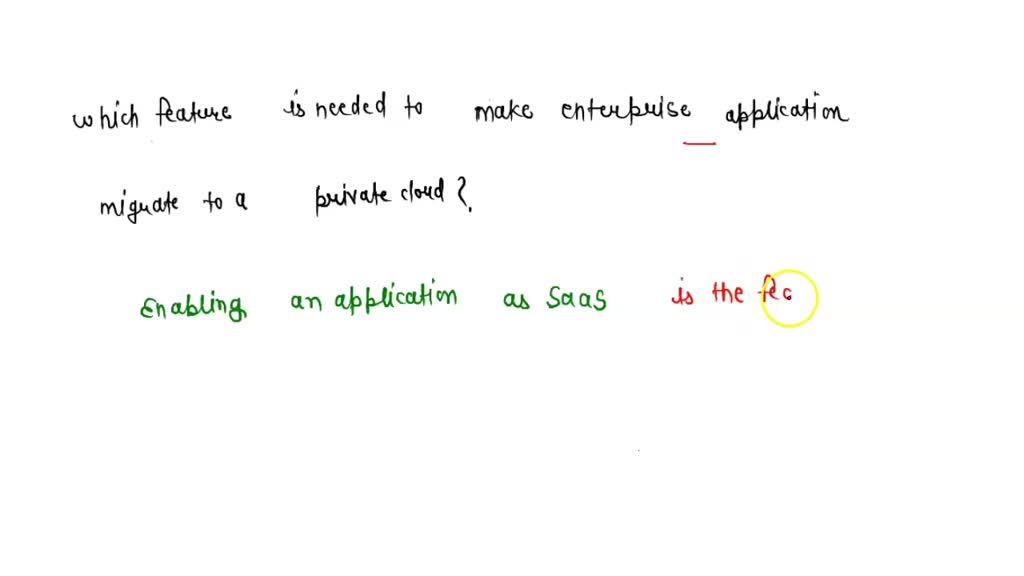 which feature is needed to make enterprise application
migrate to a private cloud?
Enabling an application as SaaS is the fea